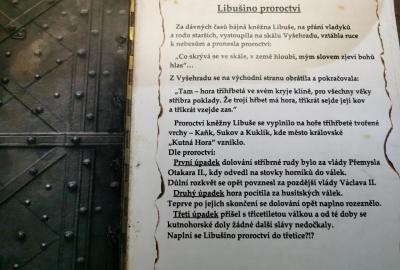 Libušino proroctví
Za dávných časů bájná kněžna Libuše, na přání vladyků
a rodu starších, vystoupila na skálu Vyšehradu, vztáhla ruce
k nebesům a pronesla proroctví:
„Co skrývá se ve skále, v země hloubi, mým slovem zjeví bohů
hlas“...
Z Vyšehradu se na východní stranu obrátila a pokračovala:
„Tam – hora tříhřbetá ve svém kryje klíně, pro všechny věky
stříbra poklady. Že trojí hřbet má hora, třikrát sejde její kov
a třikrát vzejde zas.“
Proroctví kněžny Libuše se vyplnilo na hoře tříhřbetě tvořené
vrchy – Kaňk, Sukov a Kuklík, kde město královské
„Kutná Hora“ vzniklo.
Dle proroctví:
První úpadek dolování stříbrné rudy bylo za vlády Přemysla
Otakara II., kdy odvedl na stovky horníků do válek.
Důlní rozkvět se opět povznesl za pozdější vlády Václava II.
Druhý úpadek hora pocítila za husitských válek.
Teprve po jejich skončení se dolování opět naplno rozeznělo.
Třetí úpadek přišel s třicetiletou válkou a od té doby se
kutnohorské doly žádné další slávy nedočkaly.
Naplní se Libušino proroctví do třetice?!?